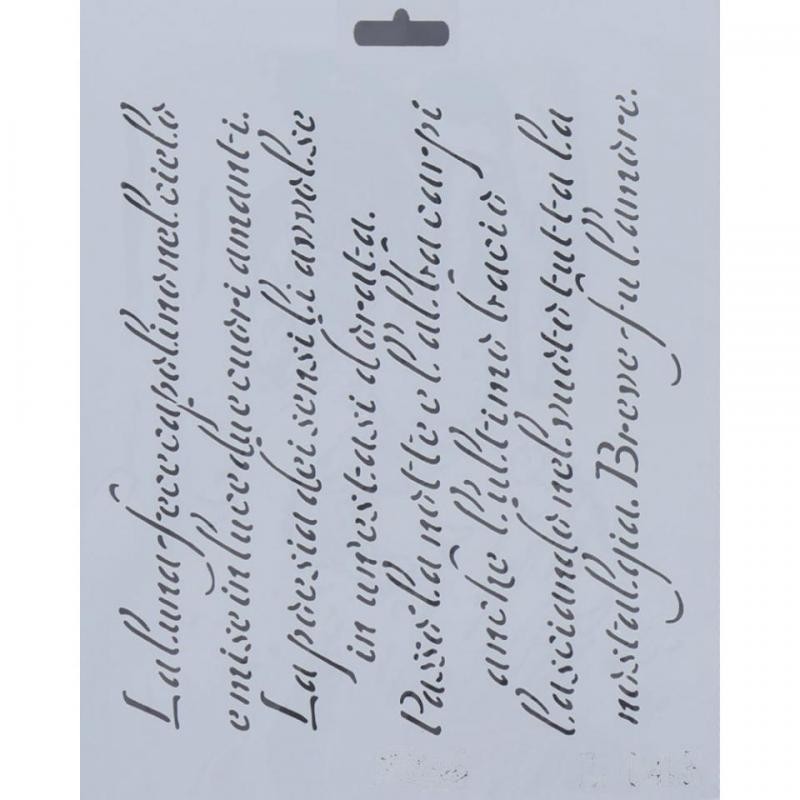 La luna fece capolino nel cielo
e mise in luce due cuori amanti.
La poesia dei sensi li avvolse
in un'estasi dorata.
Passò la notte e l'alba carpì
anche l'ultimo bacio
lasciando nel vuoto tutta la
nostalgia. Breve fu l'amore.